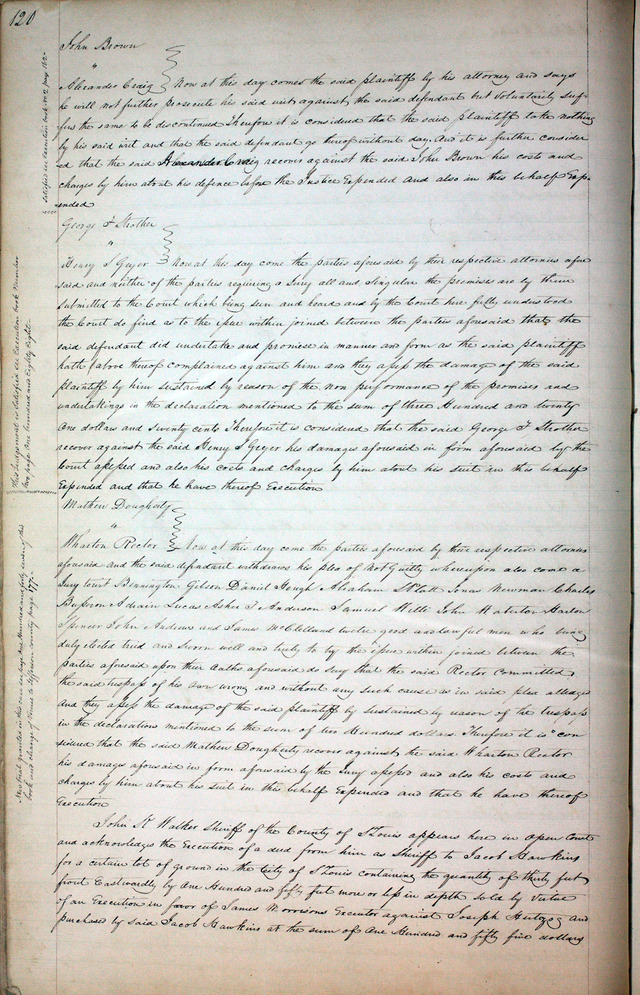 120
John Brown
"
Alexander Craig Now at this day comes the said plaintiff by his attorney and says
he will not further prosecute his said writ against the said defendant but voluntarily suf-
fers the same to be discontinued Therefore it is considered that the said plaintiff take nothing
by his said writ and that the said defendant go thereof without day. And it is further consider
ed that the said Alexander Craig recover against the said John Brown his costs and
charges by him about his defence before the Justice Expended and also in this behalf Expe-
nded
George F Strother
"
Henry S Geyer Now at this day come the parties aforesaid by their respective attornies afore
said and neither of the parties requiring a Jury all and Singular the premises are by them
submitted to the Court which being seen and heard and by the Court here fully understood
the Court do find as to the issue within joined between the parties aforesaid that the
said defendant did undertake and promise in manner and form as the said plaintiff
hath above thereof complained against him and they assess the damage of the said
plaintiff by him sustained by reason of the non performance of the promises and
undertakings in the declaration mentioned to the sum of three Hundred and twenty
one dollars and Seventy cents Therefore it is considered that the said George F Strother
recover against the said Henry S Geyer his damages aforesaid in form aforesaid by the
Court assessed and also his costs and charges by him about his suit in this behalf
Expended and that he have thereof Execution
Mathew Dougherty
"
Wharton Rector Now at this day come the parties aforesaid by their respective attornies
aforesaid and the said defendant withdraws his plea of Not Guilty whereupon also come a
Jury towit Bennington Gilson Daniel Hough Abraham Jonas Newman Charles
Adrain Lucas Asher F Anderson Samuel Willi John Harlow
Spencer John Andrews and James McClelland twelve good and lawful men who being
duly elected tried and sworn well and truly to try the issue within joined between the
parties aforesaid upon their Oaths aforesaid do say that the said Rector Committed
the said trespass of his own wrong and without any such cause as in said plea alledged
and they assess the damage of the said plaintiff by sustained by reason of the trespass
in the declarations mentioned to the sum of two Hundred dollars. Therefore it is "con
sidered that the said Mathew Dougherty recover against the said Wharton Rector
his damages aforesaid in form aforesaid by the Jury assessed and also his costs and
charges by him about his suit in this behalf Expended and that he have thereof
Execution
John K Walker Sheriff of the County of St Louis appears here in open Court
and acknowledges the Execution of a deed from him as Sheriff to Jacob Hawkins
for a certain lot of ground in the City of St Louis containing the quantity of thirty feet
front Eastwardly by One Hundred and fifty feet more or less in depth sold by Virtue
of an Execution in favor of James Morrisons Executor against Joseph Hertzog and
purchased by said Jacob Hawkins at the sum of One Hundred and fifty five dollars
Satisfied see Execution book No 2 page 182
This Judgement is Satisfied see Execution book Number
two page One hundred and Eighty Eight
New trial granted in this case see page One Hundred and forty seven of this
book and change of Venue to Jefferson County page 177